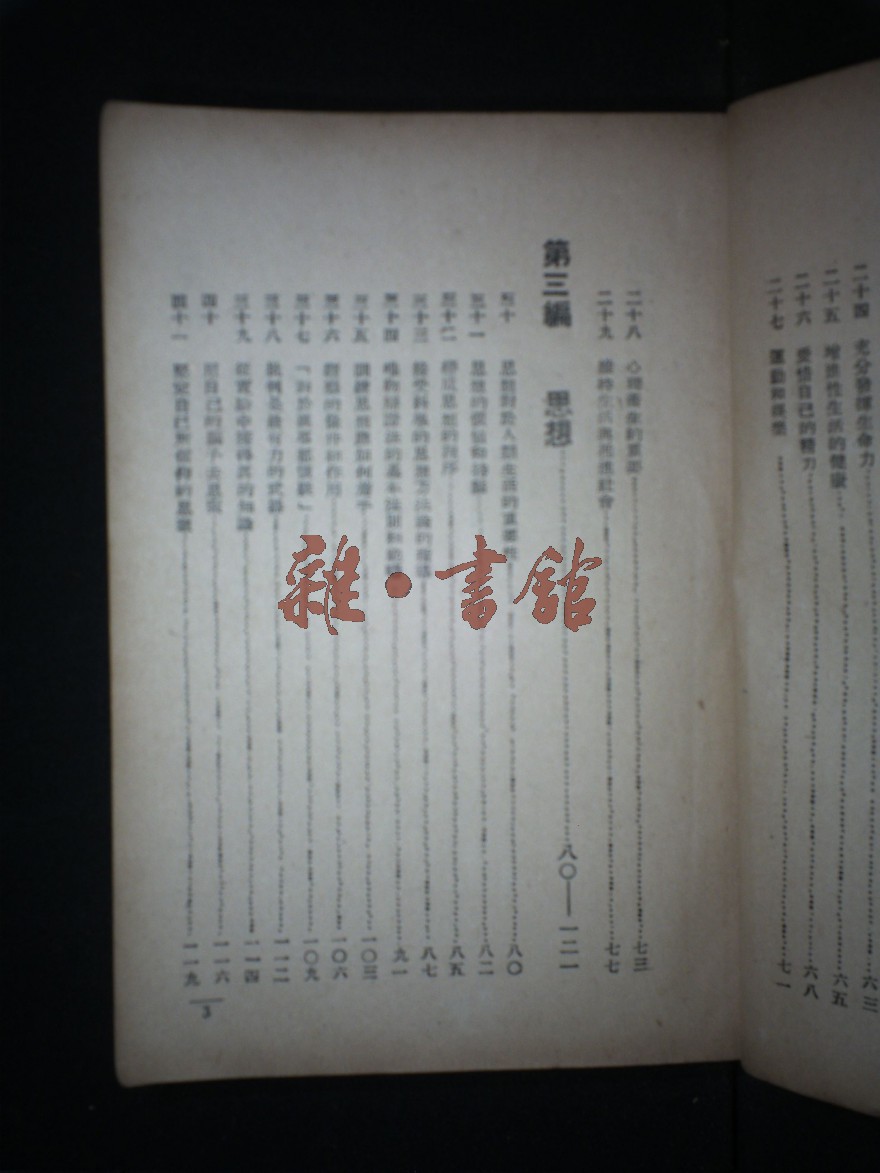 二十四　充分發揮生命力……六三
二十五　增進性生活的健康……六五
二十六　愛惜自己的精力……六八
二十七　運動和娛樂……七一
二十八　心理衛生的重要……七三
二十九　維持生活與改進社會……七七
第三編　思想……八〇——一二一
三十　思想對於人類生活的重要性……八〇
三十一　思想的價值和……八二
三十二　思想的程序……八五
三十三　接受科學的思想方法論的……八七
三十四　唯物辯證法的基本法則和……九一
三十五　訓練思想應如何着手……一〇三
三十六　經驗的條件和作用……一〇六
三十七　「對於……」……一〇九
三十八　批判是最有力的武器……一一二
三十九　從實踐中獲得真的知識……一一四
四十　用自己的腦子去思索……一一六
四十一　堅定自己所信仰的思想……一一九
3
雜·書館